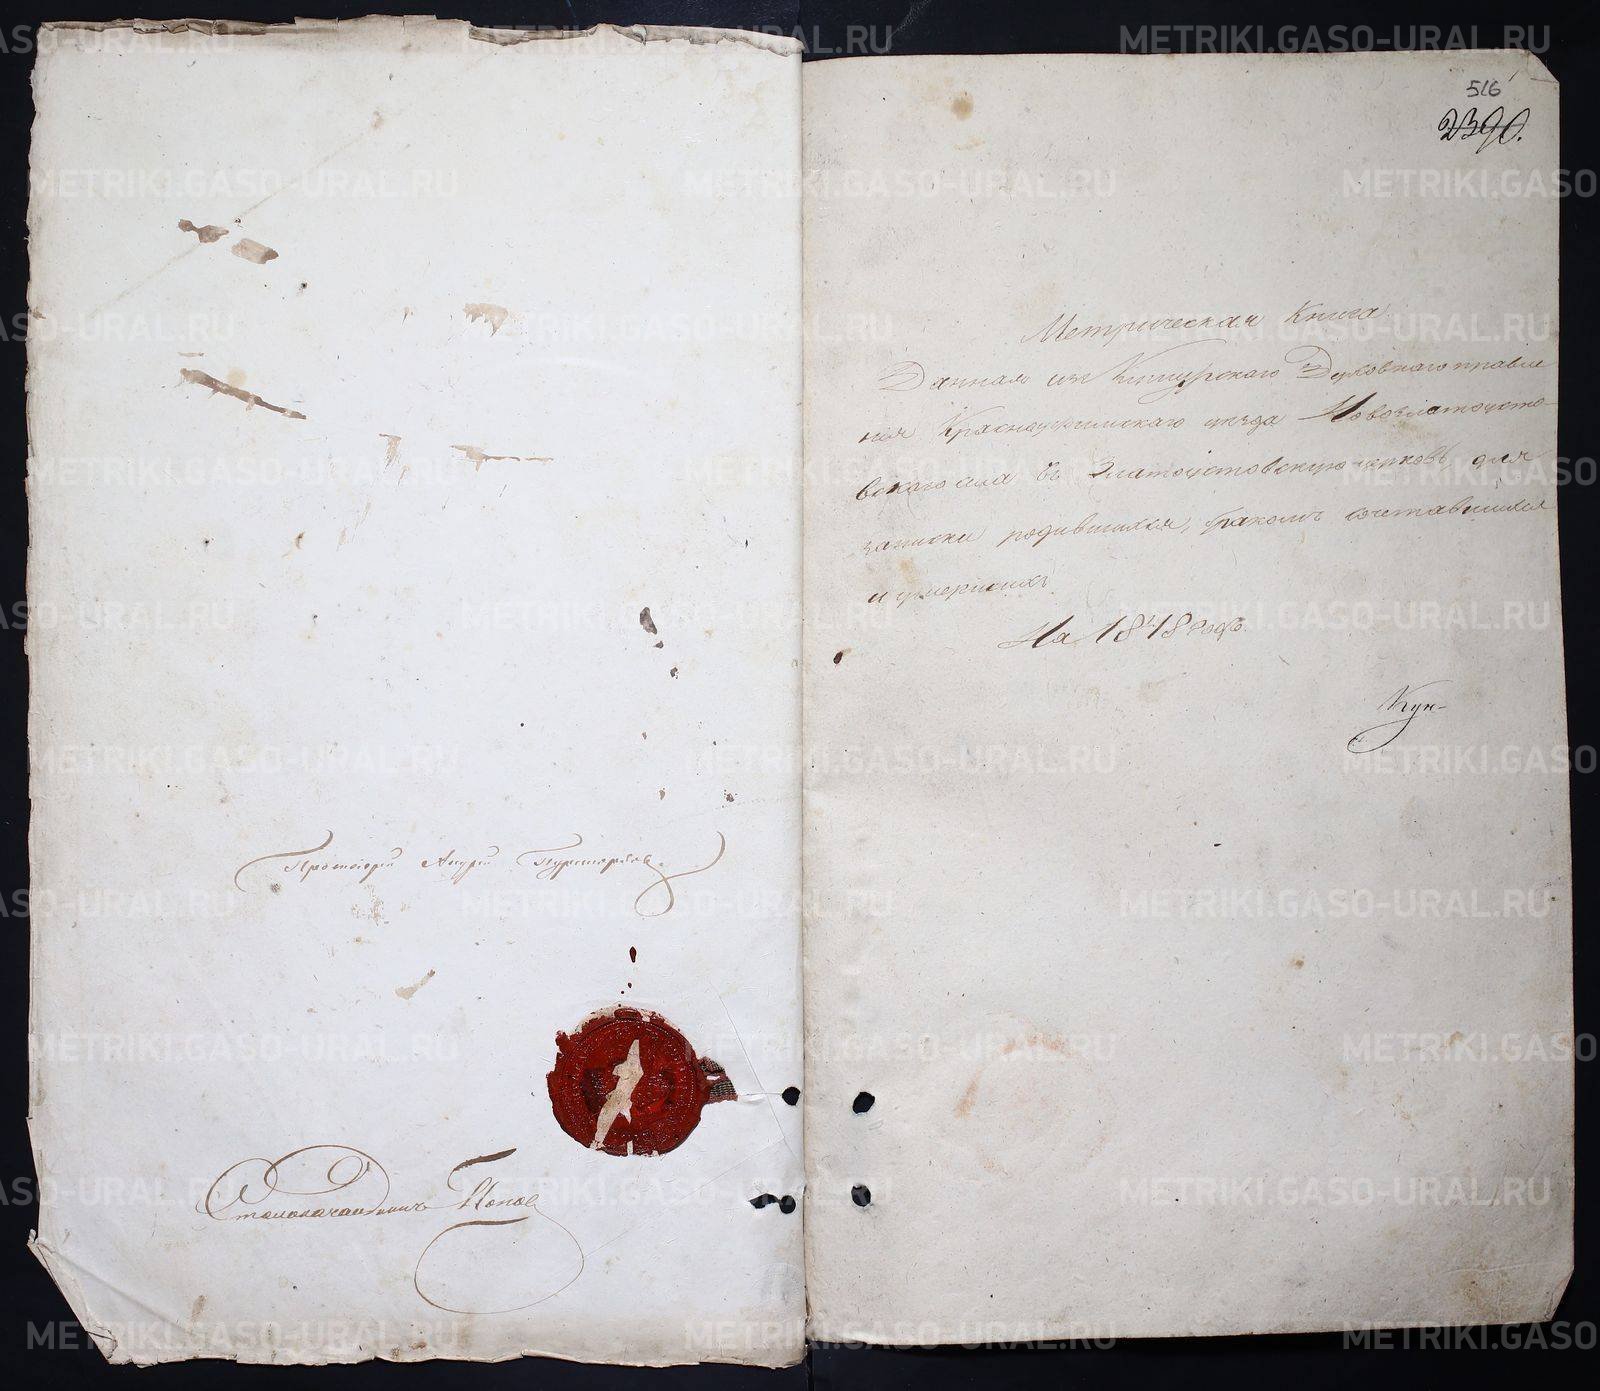 Протоіерей Андрей
Столоначальникъ Поповъ
516
2390.
Метрическая Книга
Данная изъ Кунгурскаго Духовнаго правле
нія Красноуфимскаго уѣзда Новозлатоусто-
вскаго села въ Златоустовскую церковь для
записки родившихся, бракомъ сочетавшихся
и умершихъ
На 1848 годъ.
Кун-
METRIKI.GASO-URAL.RU